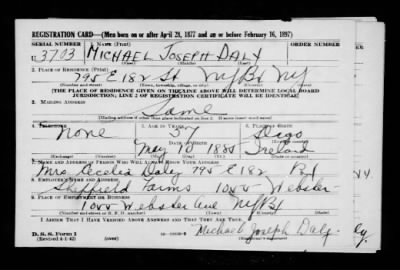 REGISTRATION CARD—(Men born on or after April 28, 1877 and on or before February 16, 1897)
SERIAL NUMBER 1. NAME (Print)
3703 MICHAEL JOSEPH DALY
2. PLACE OF RESIDENCE (Print)
795 E 182 St NY Bx NY
(Number and street) (Town, township, village, or city) (County) (State)
[THE PLACE OF RESIDENCE GIVEN ON THE LINE ABOVE WILL DETERMINE LOCAL BOARD
JURISDICTION; LINE 2 OF REGISTRATION CERTIFICATE WILL BE IDENTICAL]
3. MAILING ADDRESS
Same
[Mailing address if other than place indicated on line 2. If same insert word same]
4. TELEPHONE 5. AGE IN YEARS 6. PLACE OF BIRTH
None 57 Sligo
DATE OF BIRTH
May 10 1885 Ireland
(Exchange) (Number) (Mo.) (Day) (Yr.) (State or country)
7. NAME AND ADDRESS OF PERSON WHO WILL ALWAYS KNOW YOUR ADDRESS
Mrs Cecelia Daly 795 E 182 Bx
8. EMPLOYER'S NAME AND ADDRESS
Sheffield Farms 1055 Webster
9. PLACE OF EMPLOYMENT OR BUSINESS
1055 Webster Ave NY Bx
(Number and street or R. F. D. number) (Town) (County) (State)
I AFFIRM THAT I HAVE VERIFIED ABOVE ANSWERS AND THAT THEY ARE TRUE.
D. S. S. Form 1
(Revised 4-1-42) (over)
Michael Joseph Daly